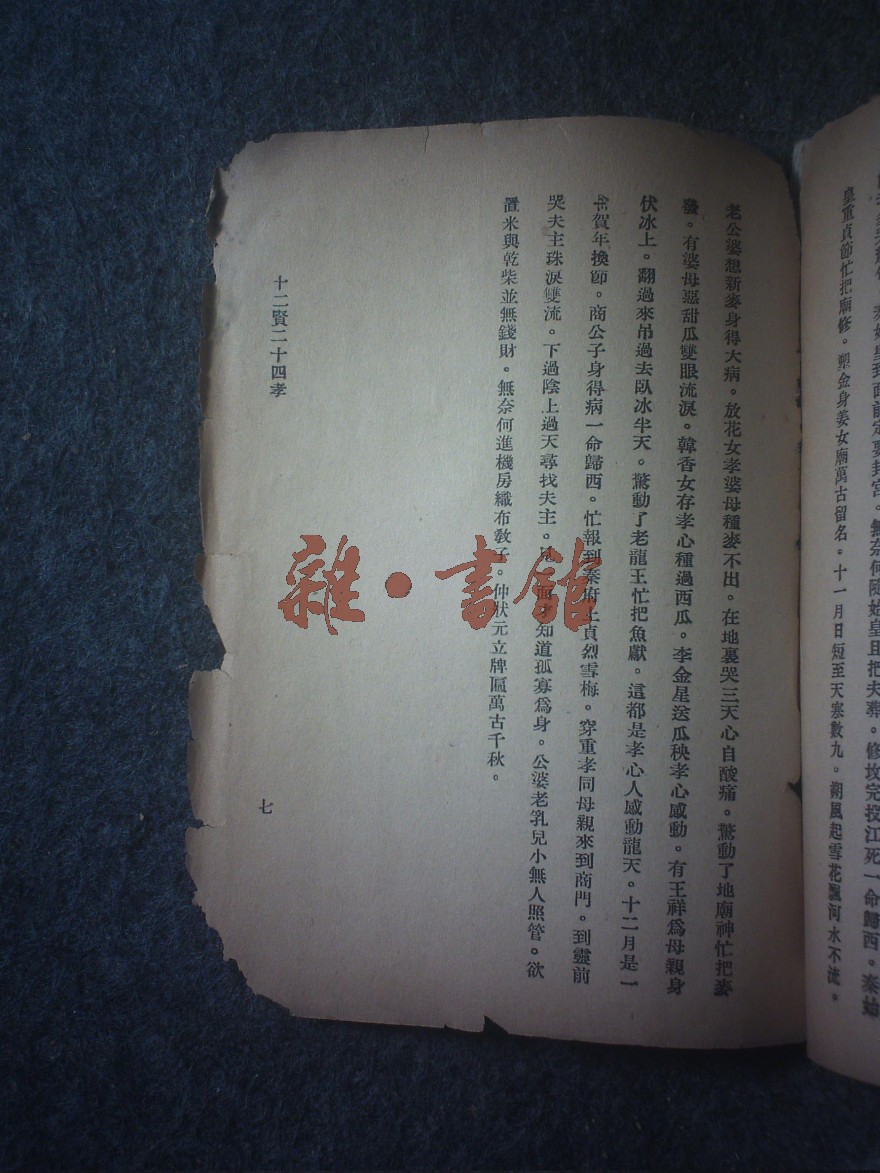 皇重貞節忙把廟修。塑金身姜女廟萬古留名。十一月日短至天寒數九。朔風起雪花飄河水不流。
老公婆想新麥身得大病。放花女孝婆母種麥不出。在地裏哭三天心自酸痛。驚動了地廟神忙把麥
發。有婆母惡甜瓜雙眼流淚。韓香女存孝心種過西瓜。李金星送瓜秧孝心感動。有王祥爲母親身
伏冰上。翻過來吊過去臥冰半天。驚動了老龍王忙把魚獻。這都是孝心人感動龍天。十二月是一
年賀年換節。商公子身得病一命歸西。忙報到秦府上貞烈雪梅。穿重孝同母親來到商門。到靈前
哭夫主珠淚雙流。下過陰上過天尋找夫主。知道孤寡爲身。公婆老乳兒小無人照管。欲
置米與乾柴並無錢財。無奈何進機房織布教子。仲狀元立牌匾萬古千秋。
十二賢二十四孝
七
雜·書館